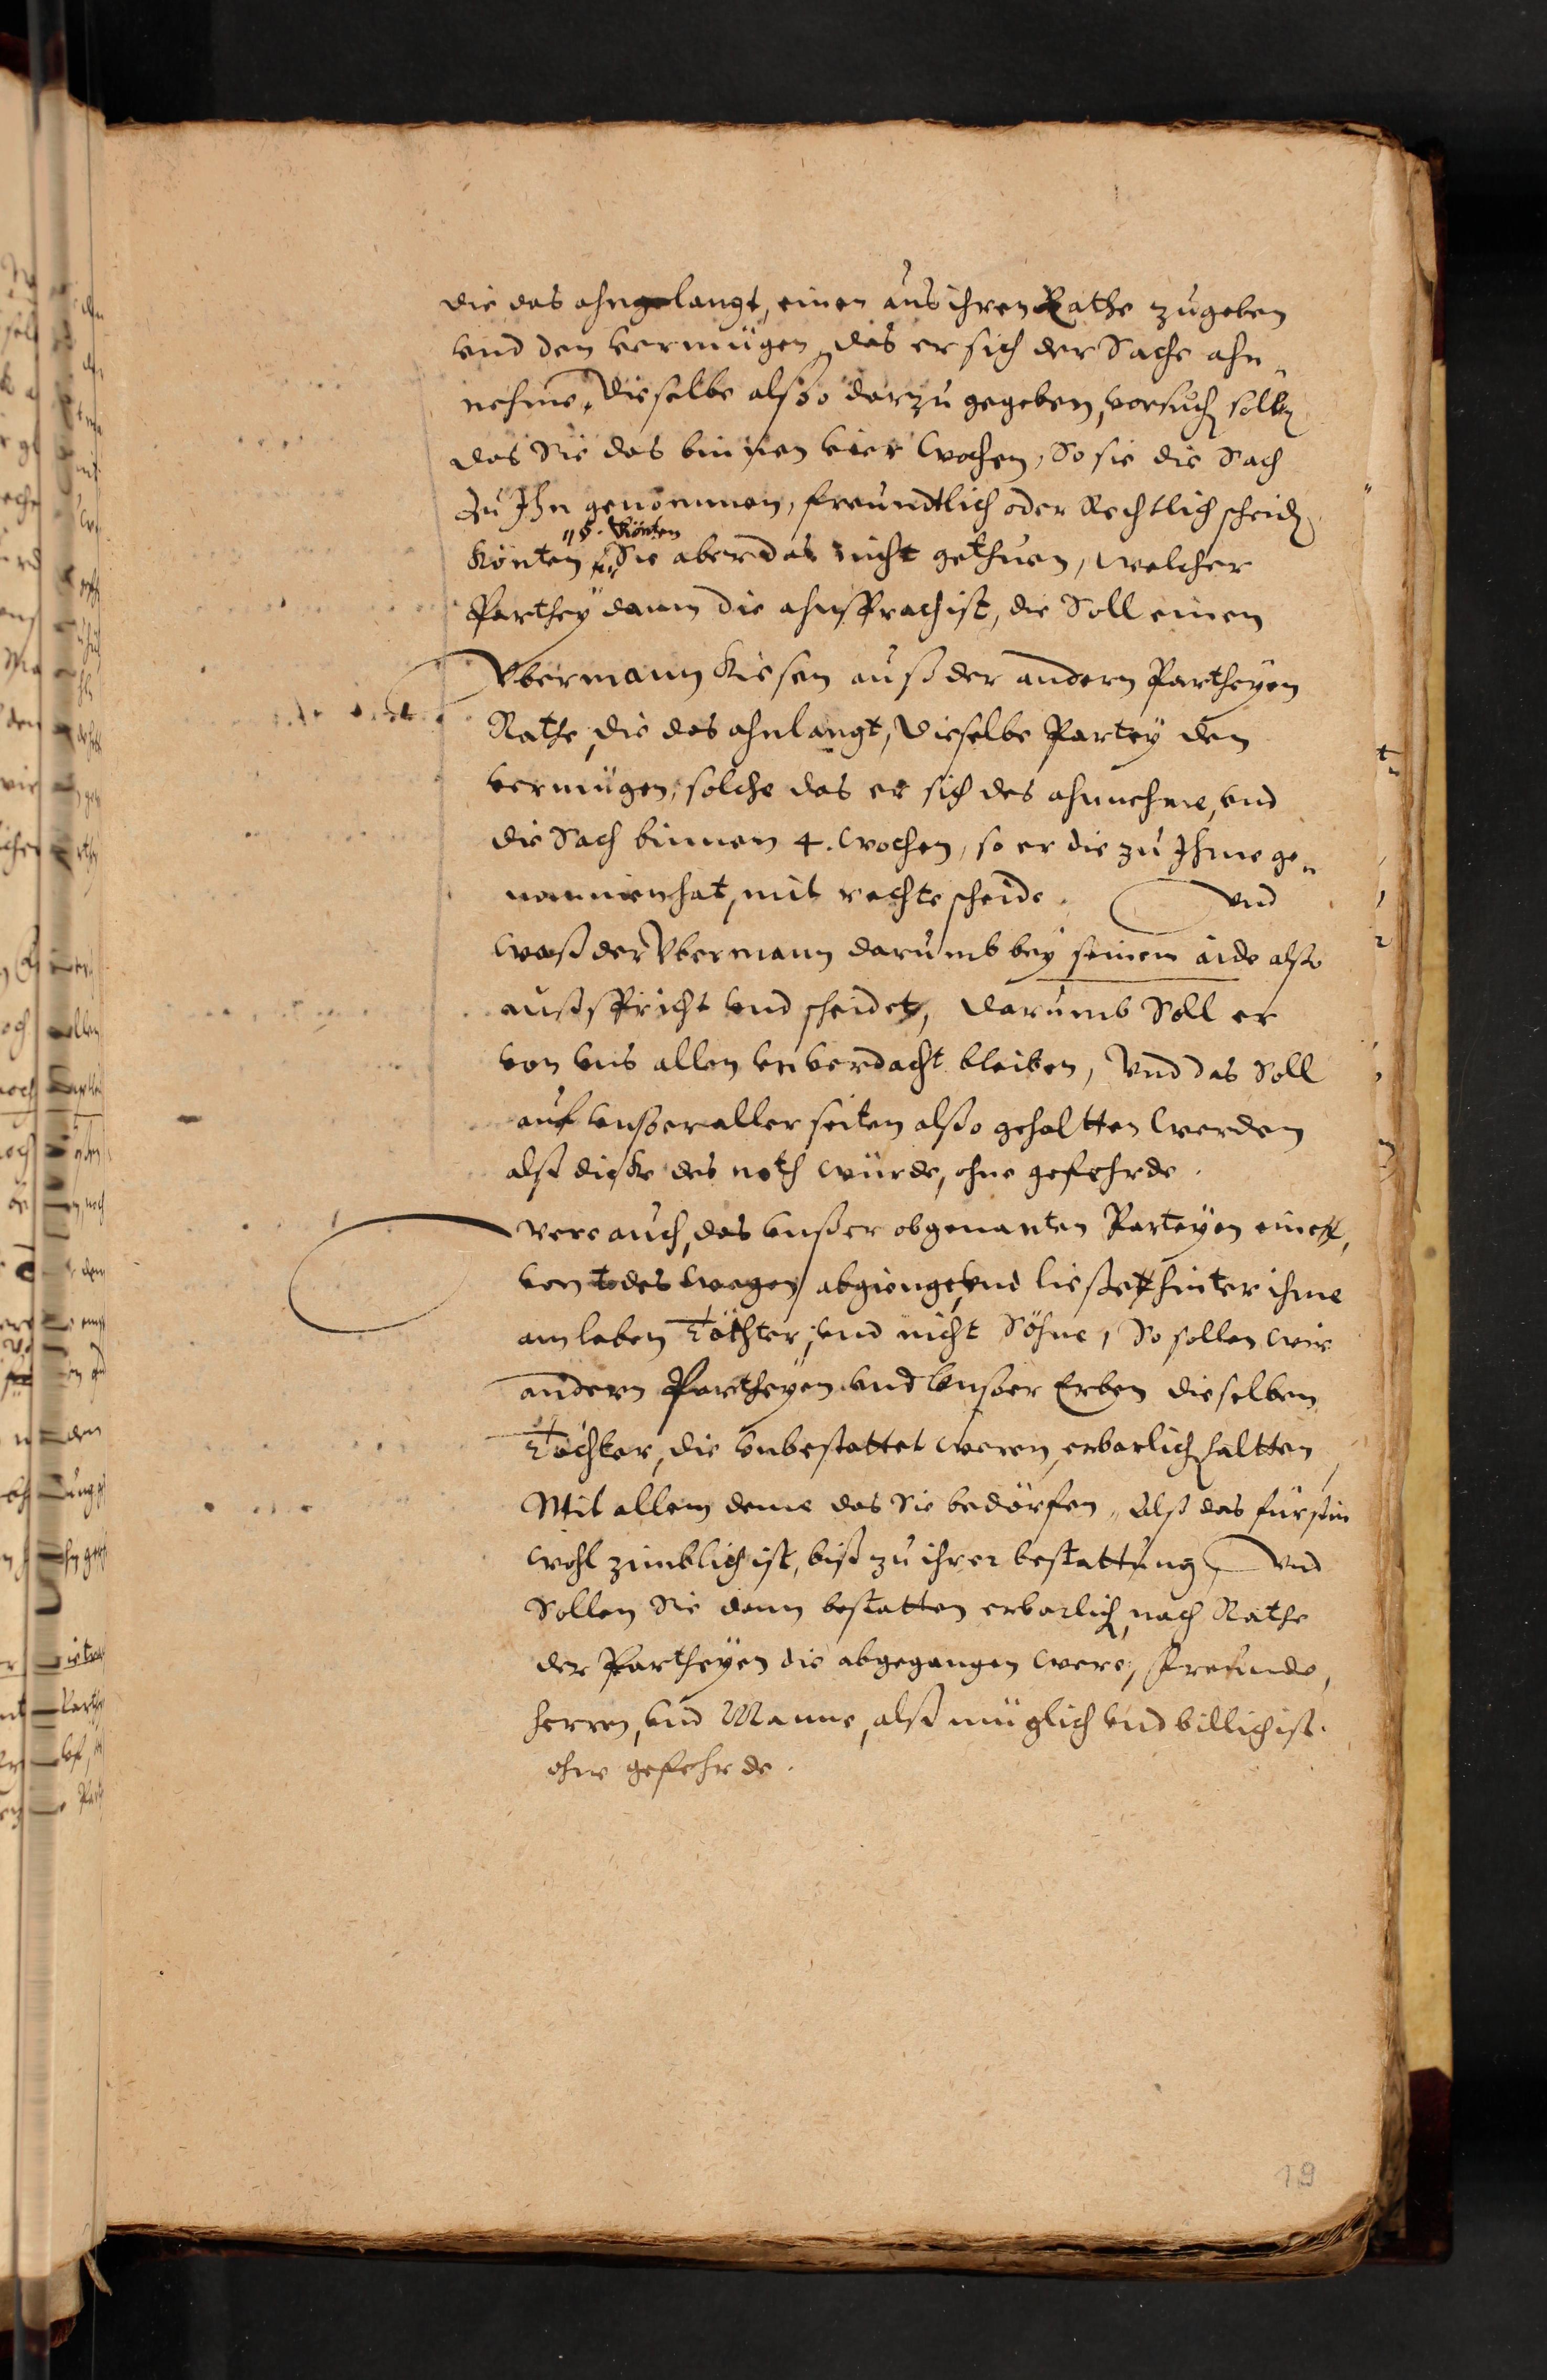 die das ahngelangt, einen aus ihren Rathe zugeben
vnd den vermügen, das er sich der Sache ahn„
nehme, dieselbe alßo darzu gegeben, vorsuchen sollen
das Sie das binnen vier wochen, So sie die Sach
zu Ihn genommen, freundtlich oder Rechtlich scheiden
Könten
Könten Sie aber das nicht gethuen, welcher
Parthey dann die ahnsprach ist, die Soll einen
Vbermann Kiesen auß der andern Partheyen
Rathe, die das ahnlangt, dieselbe Partey den
vermügen, solche das er sich des ahnnehme, vnd
die Sach binnen 4. wochen, so er die zu Ihme ge„
nommen hat, mit rechte scheide. Vnd
waß der Vbermann darumb bey seinem aide alßo
außspricht vnd scheidet, darumb Soll er
von vns allen vnverdacht bleiben, Vnd das Soll
auf vnßer aller seiten alßo gehaltten werden
alß dicke des noth würde, ohne gefehrde.
Were auch, das vnßer obgenanten Parteyen eine,
von todes wegen abgienge, vnd ließe hinter ihme
am leben Töchter, vnd nicht Söhne, So sollen wir
andern Partheyen vnd vnßer Erben dieselben
Töchter, die vnbestattet weren, erbarlich haltten,
Mit allem deme das Sie bedörfen, Alß das fürstin
wohl zimblich ist, biß zu ihrer bestattung, Vnd
Sollen Sie dann bestatten erbarlich, nach Rathe
der Partheyen die abgegangen were, freunde,
herren, vnd Manne, alß müglich vnd billich ist.
ohne gefehrde.
19